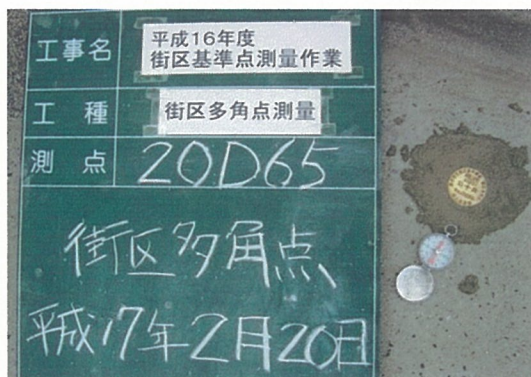 工事名
平成16年度
街区基準点測量作業
工種
街区多角点測量
測点
20D65
街区多角点
平成17年2月20日